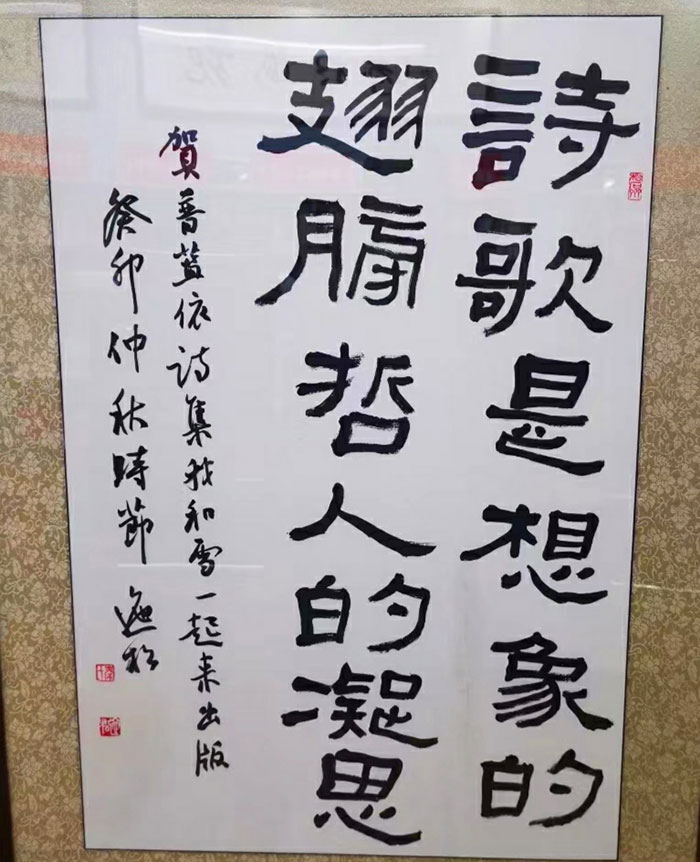 詩歌是想象的
翅膀哲人的凝思
賀普蓝依诗集我和雪一起来出版
癸卯仲秋時節